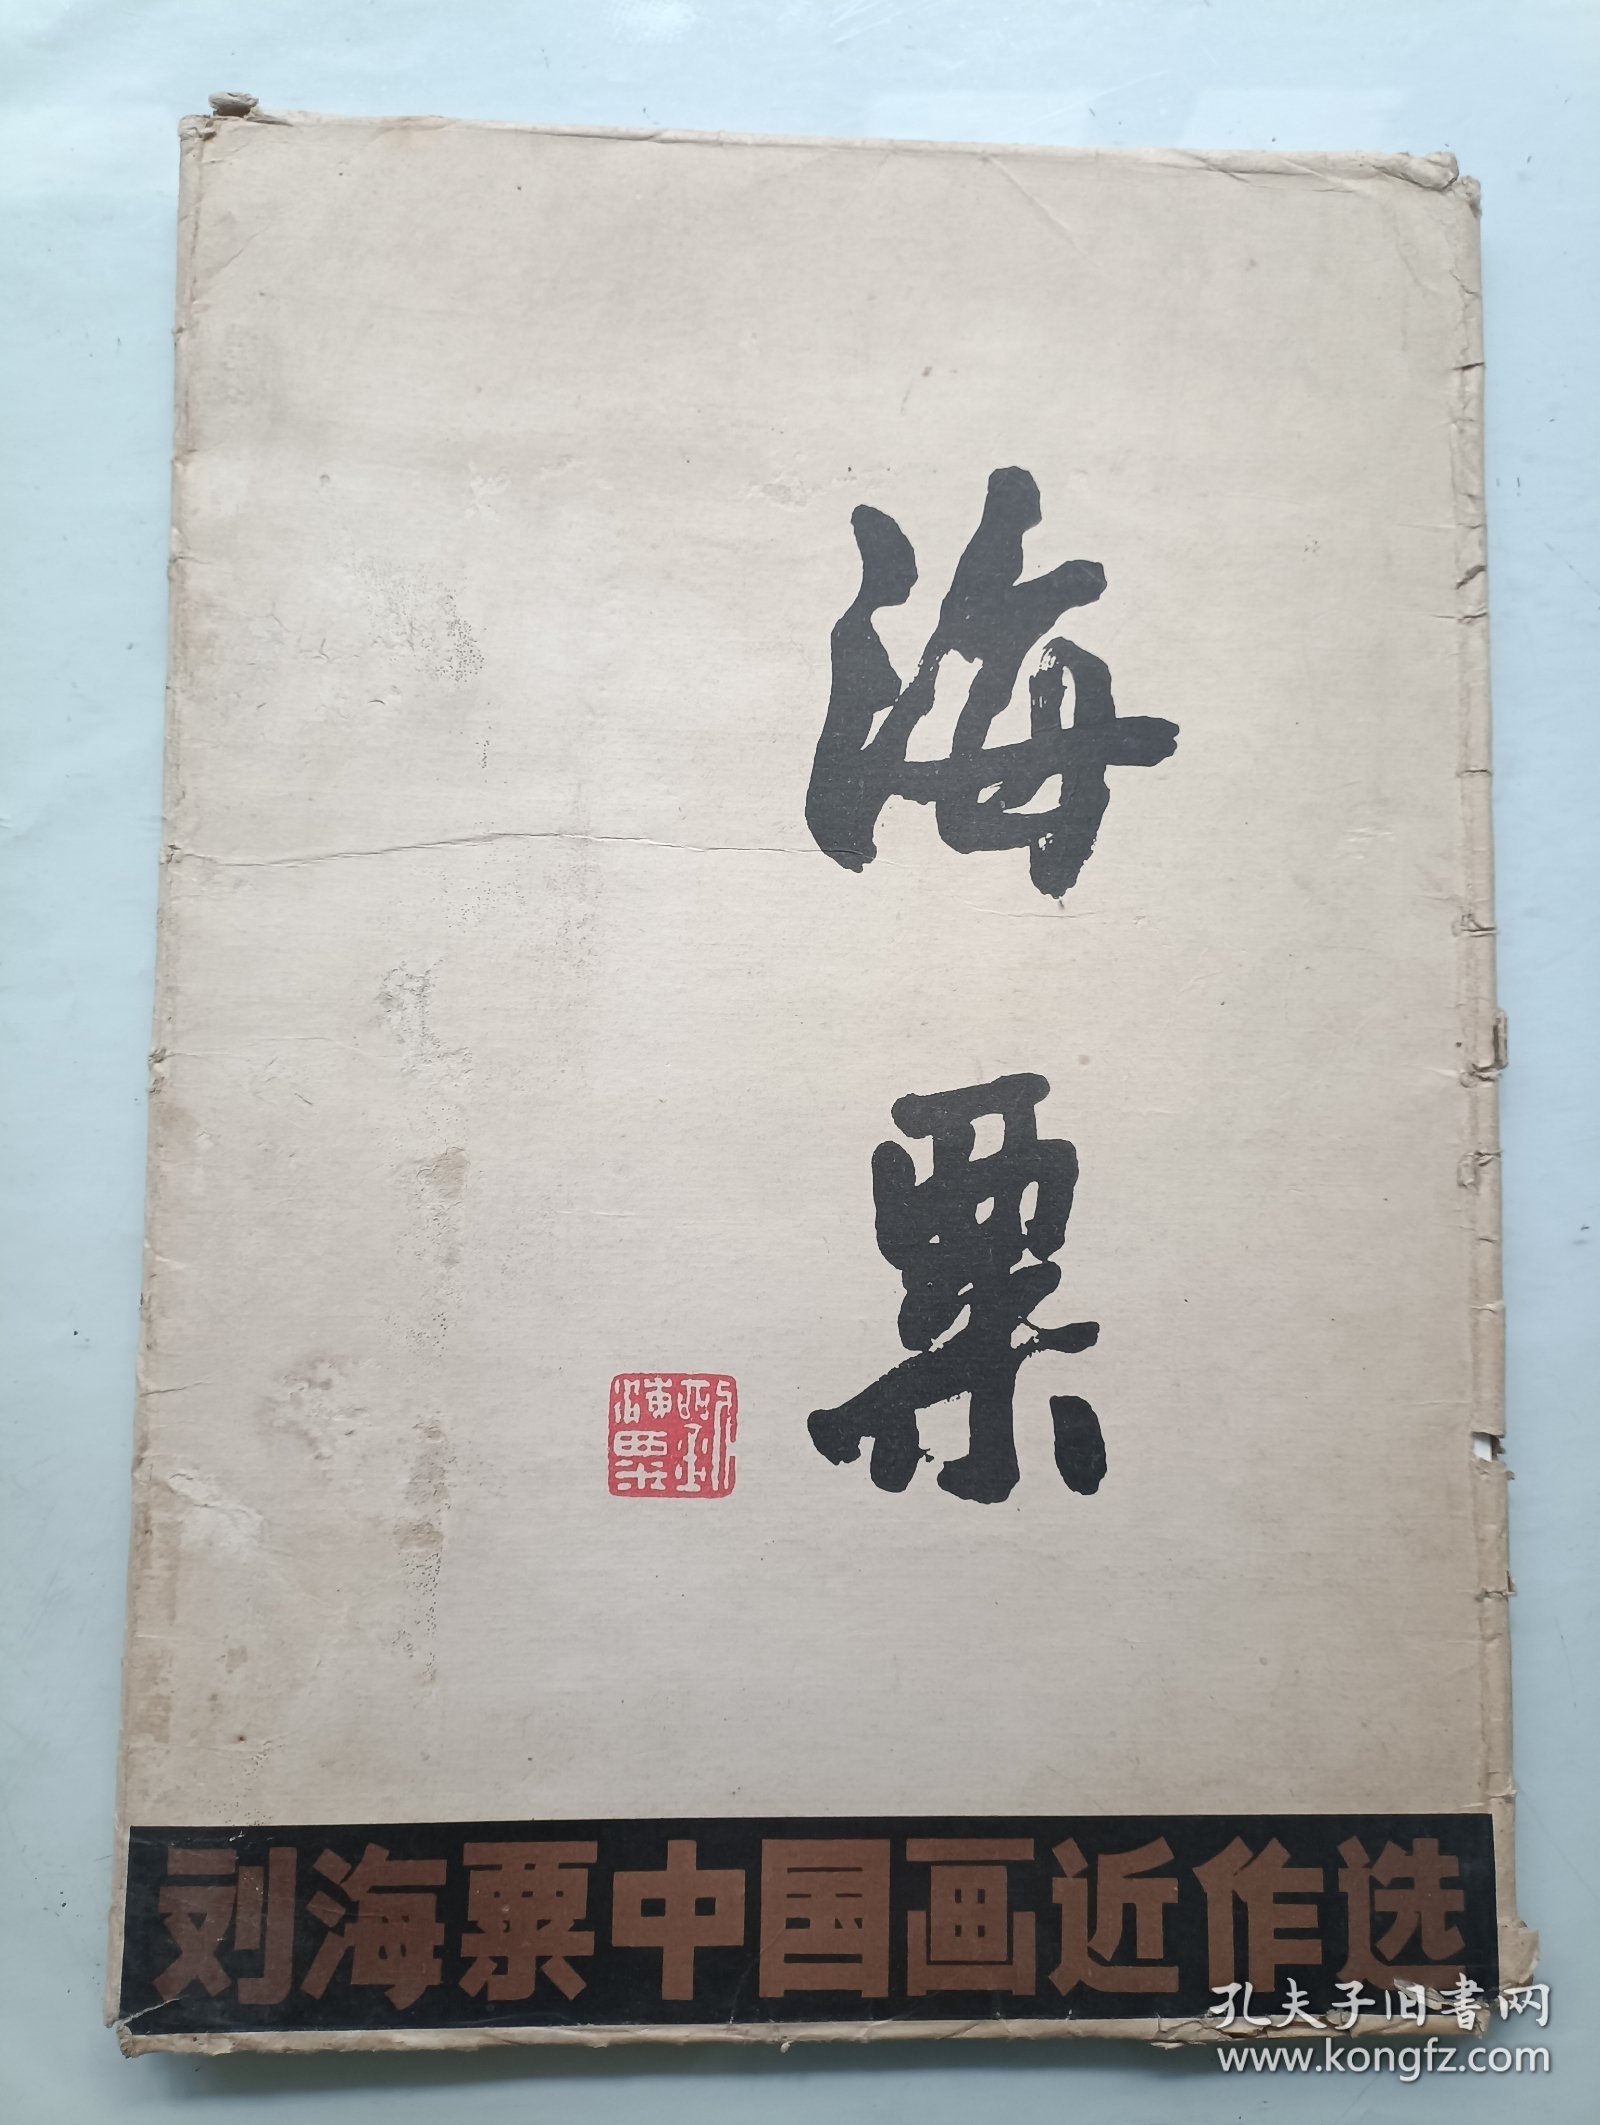 海粟
刘海粟
刘海粟中国画近作选
孔夫子旧書网
www.kongfz.com